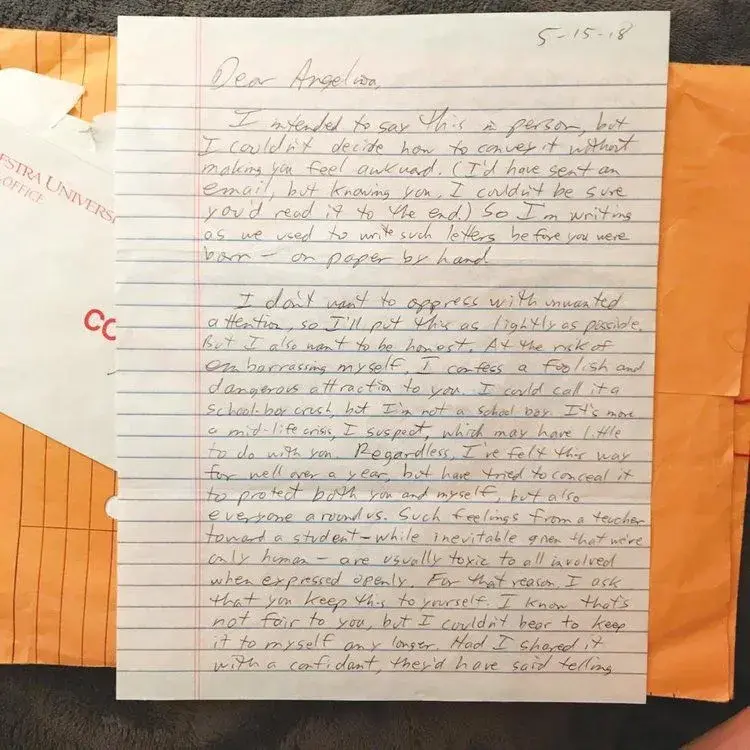 5-15-18
Dear Angelina,
I intended to say this in person, but
I couldn't decide how to convey it without
making you feel awkward. (I'd have sent an
email, but knowing you, I couldn't be sure
you'd read it to the end.) So I'm writing
as we used to write such letters before you were
born – on paper by hand.
I don't want to oppress with unwanted
attention, so I'll put this as lightly as possible.
But I also want to be honest. At the risk of
embarrassing myself, I confess a foolish and
dangerous attraction to you. I could call it a
school-boy crush, but I'm not a school boy. It's more
a mid-life crisis, I suspect, which may have little
to do with you. Regardless, I've felt this way
for well over a year, but have tried to conceal it
to protect both you and myself, but also
everyone around us. Such feelings from a teacher
toward a student – while inevitable given that we're
only human – are usually toxic to all involved
when expressed openly. For that reason, I ask
that you keep this to yourself. I know that's
not fair to you, but I couldn't bear to keep
it to myself any longer. Had I shared it
with a confidant, they'd have said telling
ESTRA UNIVERS
OFFICE
CO